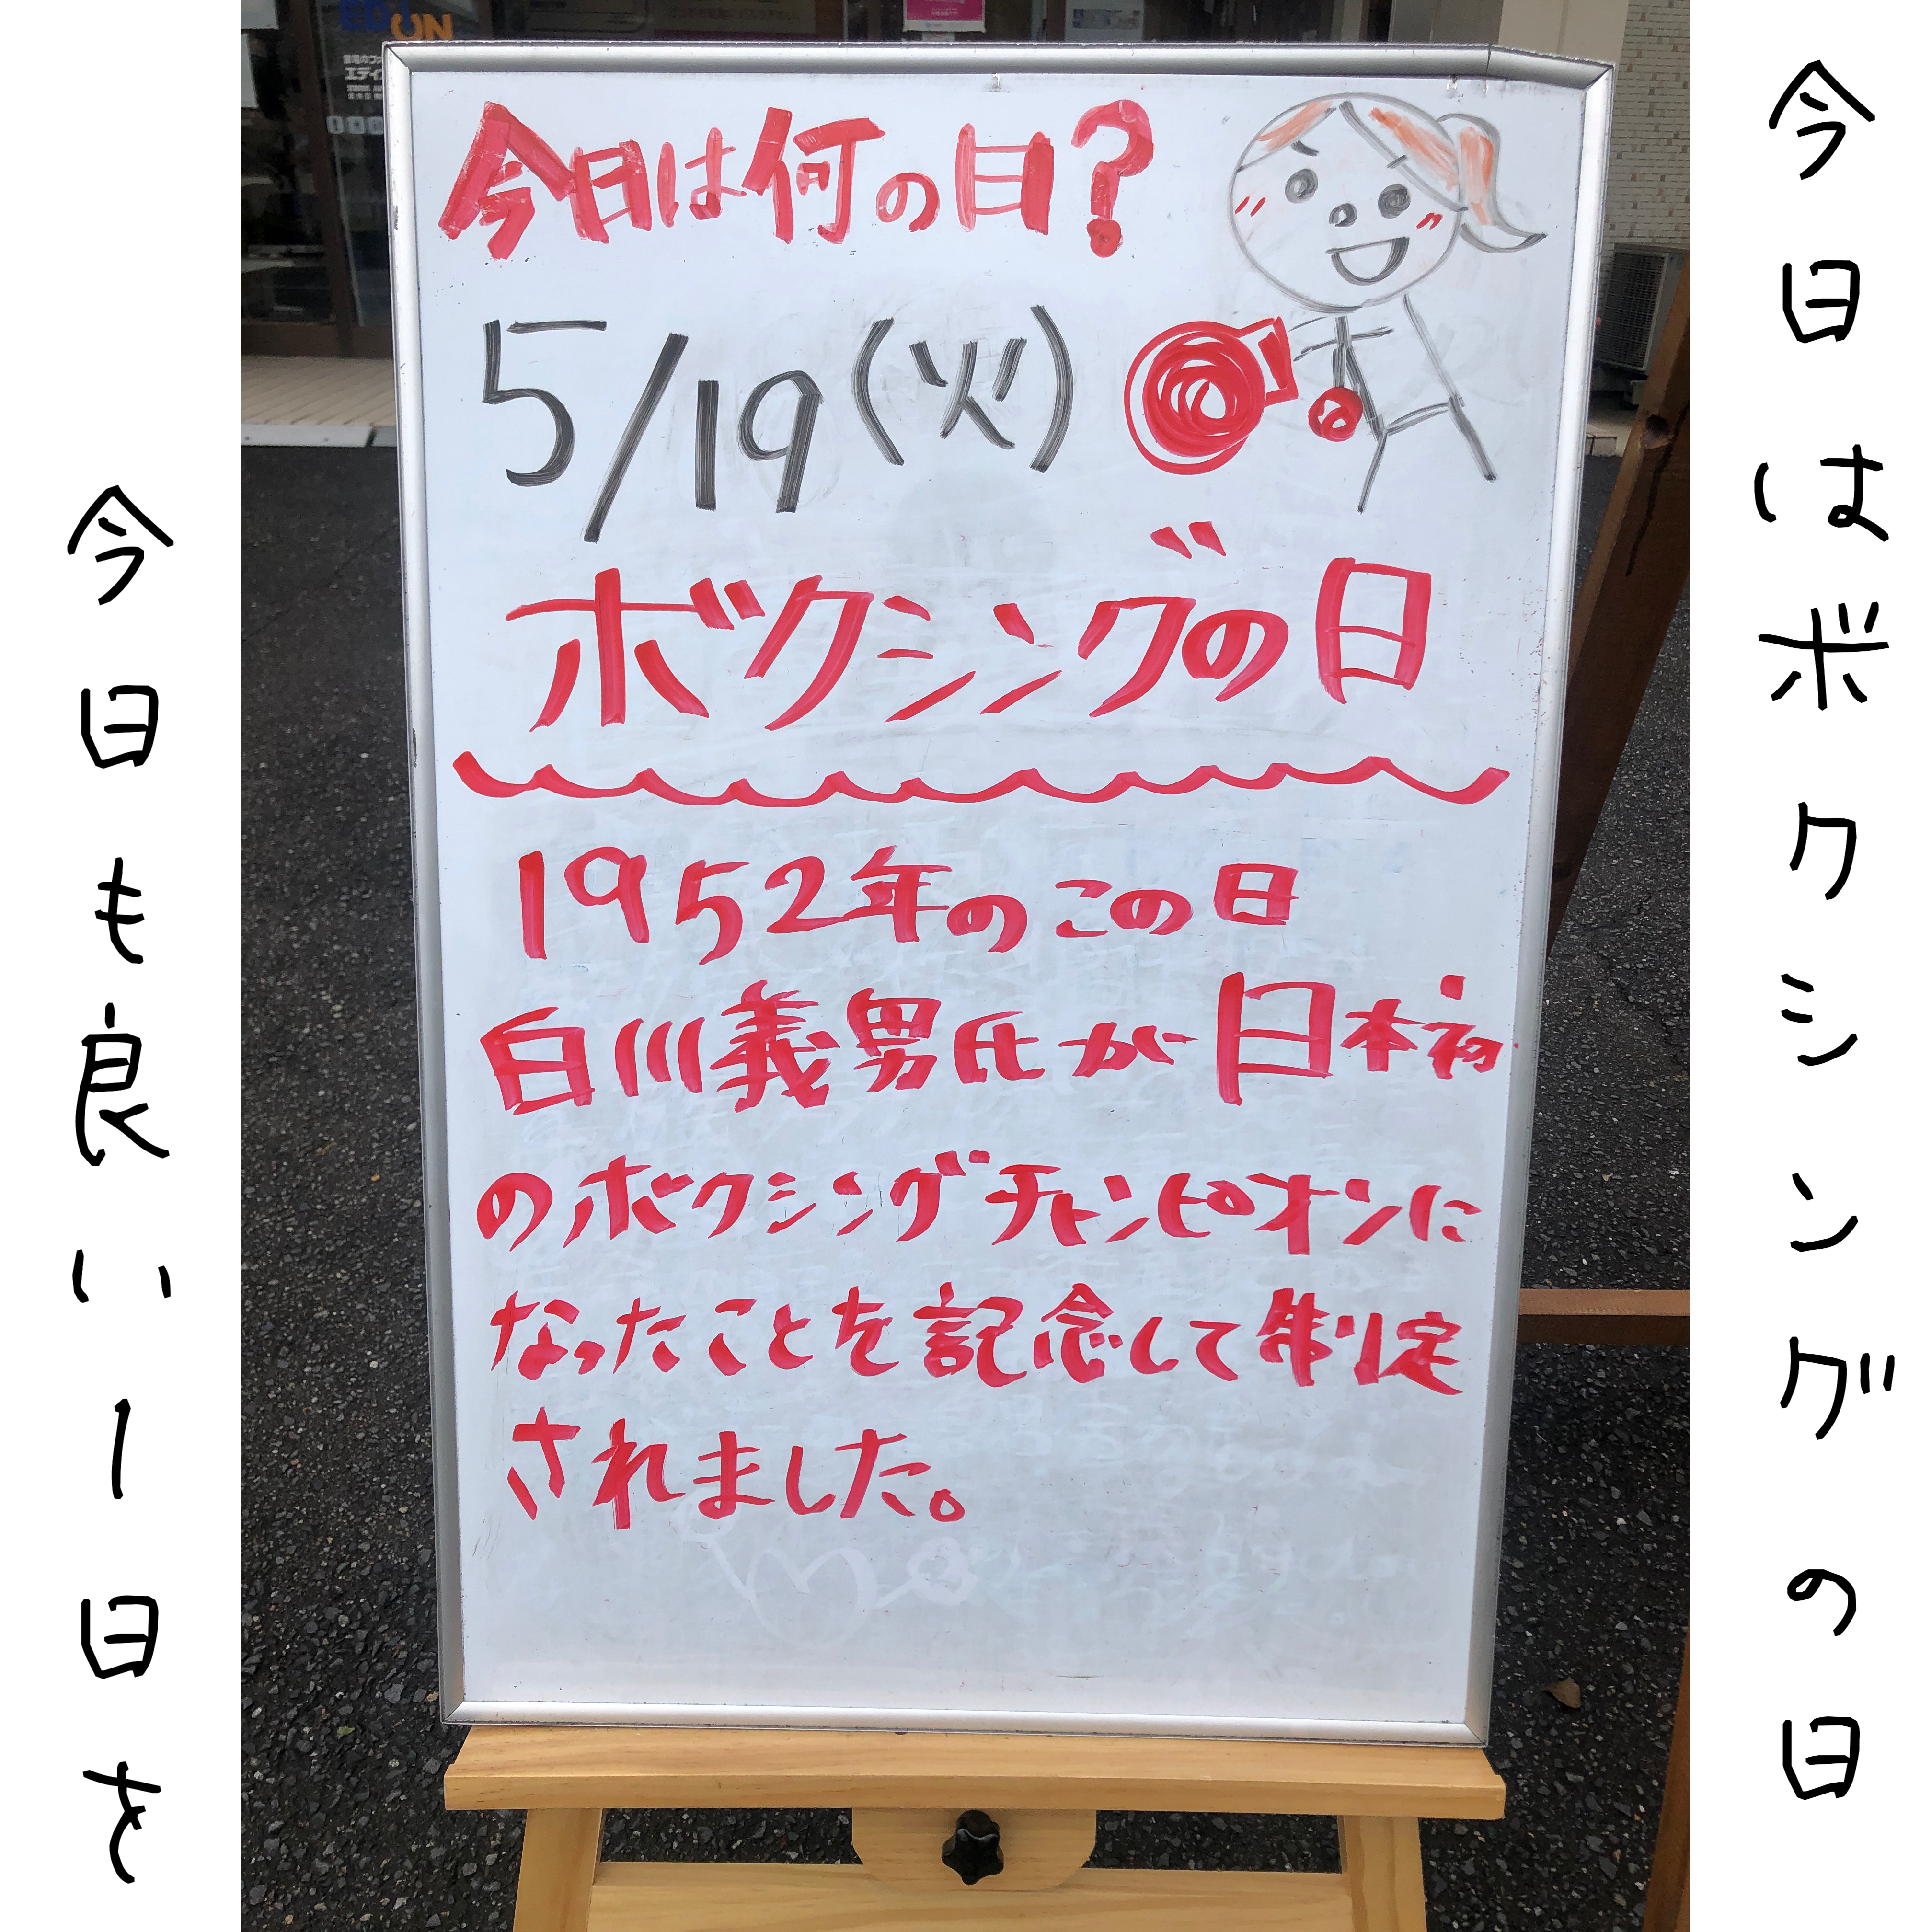 今日はボクシングの日
今日は何の日?
5/19(火)
ボクシングの日
1952年のこの日
白川義男氏が日本初
のボクシングチャンピオンに
なったことを記念して制定
されました。
今日も良い1日を
EDION